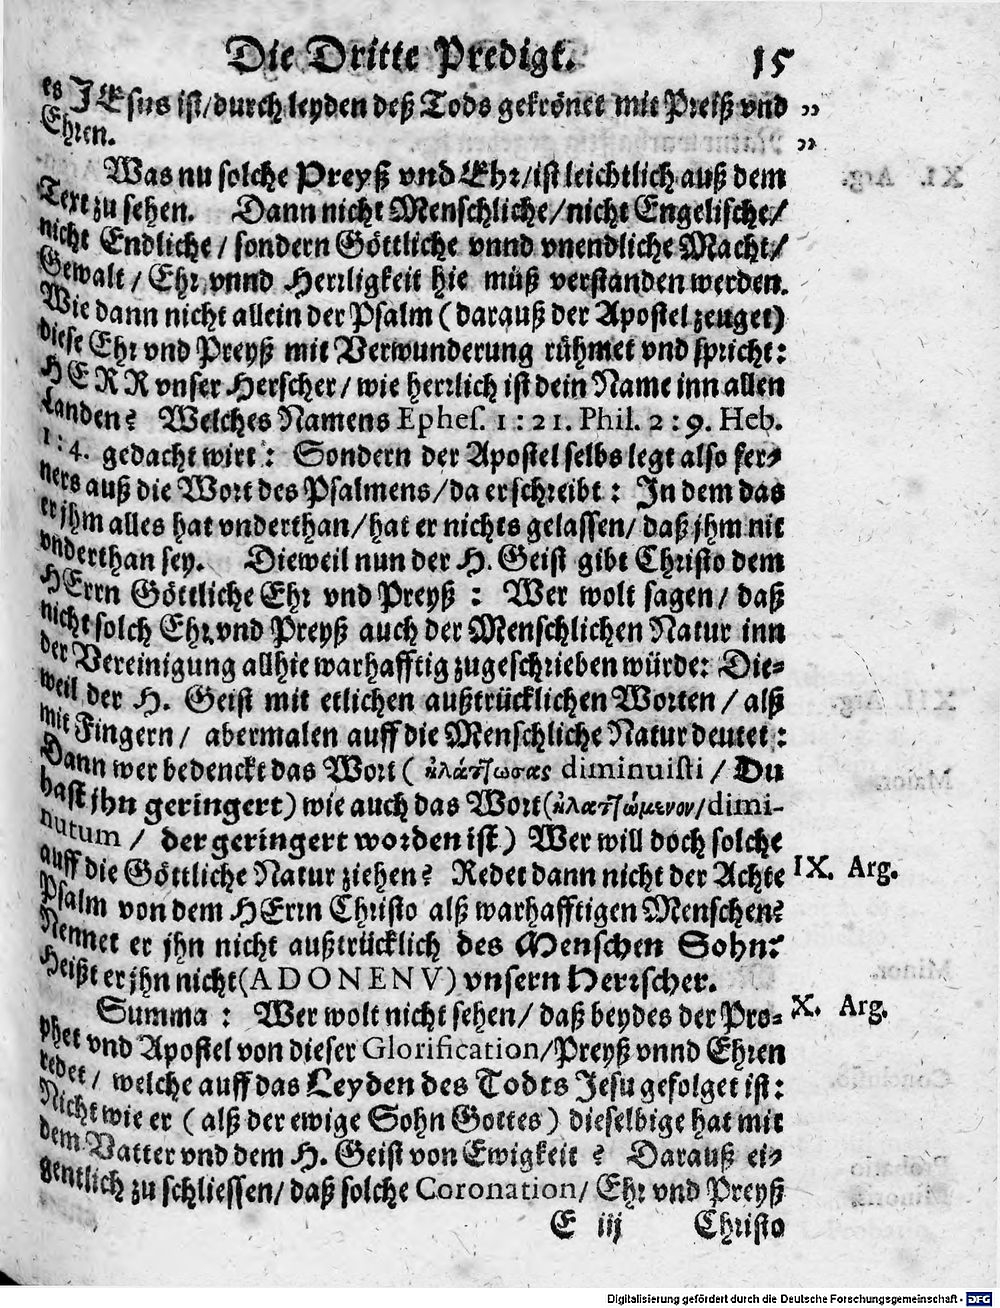 Die Dritte Predigt. 15
es JEsus ist/durch leyden deß Tods gekrönet mit Preiß vnd „
Ehren. „
Was nu solche Preyß vnd Ehr/ist leichtlich auß dem
Text zu sehen. Dann nicht Menschliche/nicht Engelische/
nicht Endliche/sondern Göttliche vnnd vnendliche Macht/
Gewalt/Ehr vnnd Herrligkeit hie müß verstanden werden.
Wie dann nicht allein der Psalm (darauß der Apostel zeuget)
diese Ehr vnd Preyß mit Verwunderung rühmet vnd spricht:
HERR vnser Herscher/wie herrlich ist dein Name inn allen
Landen? Welches Namens Ephes. 1:21. Phil. 2:9. Heb.
1:4. gedacht wirt: Sondern der Apostel selbs legt also fer-
ners auß die Wort des Psalmens/da er schreibt: In dem das
er jhm alles hat vnderthan/hat er nichts gelassen/daß jhm nit
vnderthan sey. Dieweil nun der H. Geist gibt Christo dem
HErrn Göttliche Ehr vnd Preyß: Wer wolt sagen/daß
nicht solch Ehr vnd Preyß auch der Menschlichen Natur inn
der Vereinigung allhie warhafftig zugeschrieben würde: Die-
weil der H. Geist mit etlichen außtrücklichen Worten/alß
mit Fingern/abermalen auff die Menschliche Natur deutet:
Dann wer bedenckt das Wort (ἠλάττωσας diminuisti/Du
hast jhn geringert) wie auch das Wort (ἠλαττώμενον/dimi-
nutum/der geringert worden ist) Wer will doch solche
auff die Göttliche Natur ziehen? Redet dann nicht der Achte
IX. Arg.
Psalm von dem HErrn Christo alß warhafftigen Menschen?
Nennet er jhn nicht außtrücklich des Menschen Sohn?
Heißt er jhn nicht (ADONENV) vnsern Herrscher.
Summa: Wer wolt nicht sehen/daß beydes der Pro-
X. Arg.
phet vnd Apostel von dieser Glorification/Preyß vnnd Ehren
redet/welche auff das Leyden des Todts Jesu gefolget ist:
Nicht wie er (alß der ewige Sohn Gottes) dieselbige hat mit
dem Vatter vnd dem H. Geist von Ewigkeit? Darauß ei-
gentlich zu schliessen/daß solche Coronation/Ehr vnd Preyß
E iij Christo
Digitalisierung gefördert durch die Deutsche Forschungsgemeinschaft - DFG